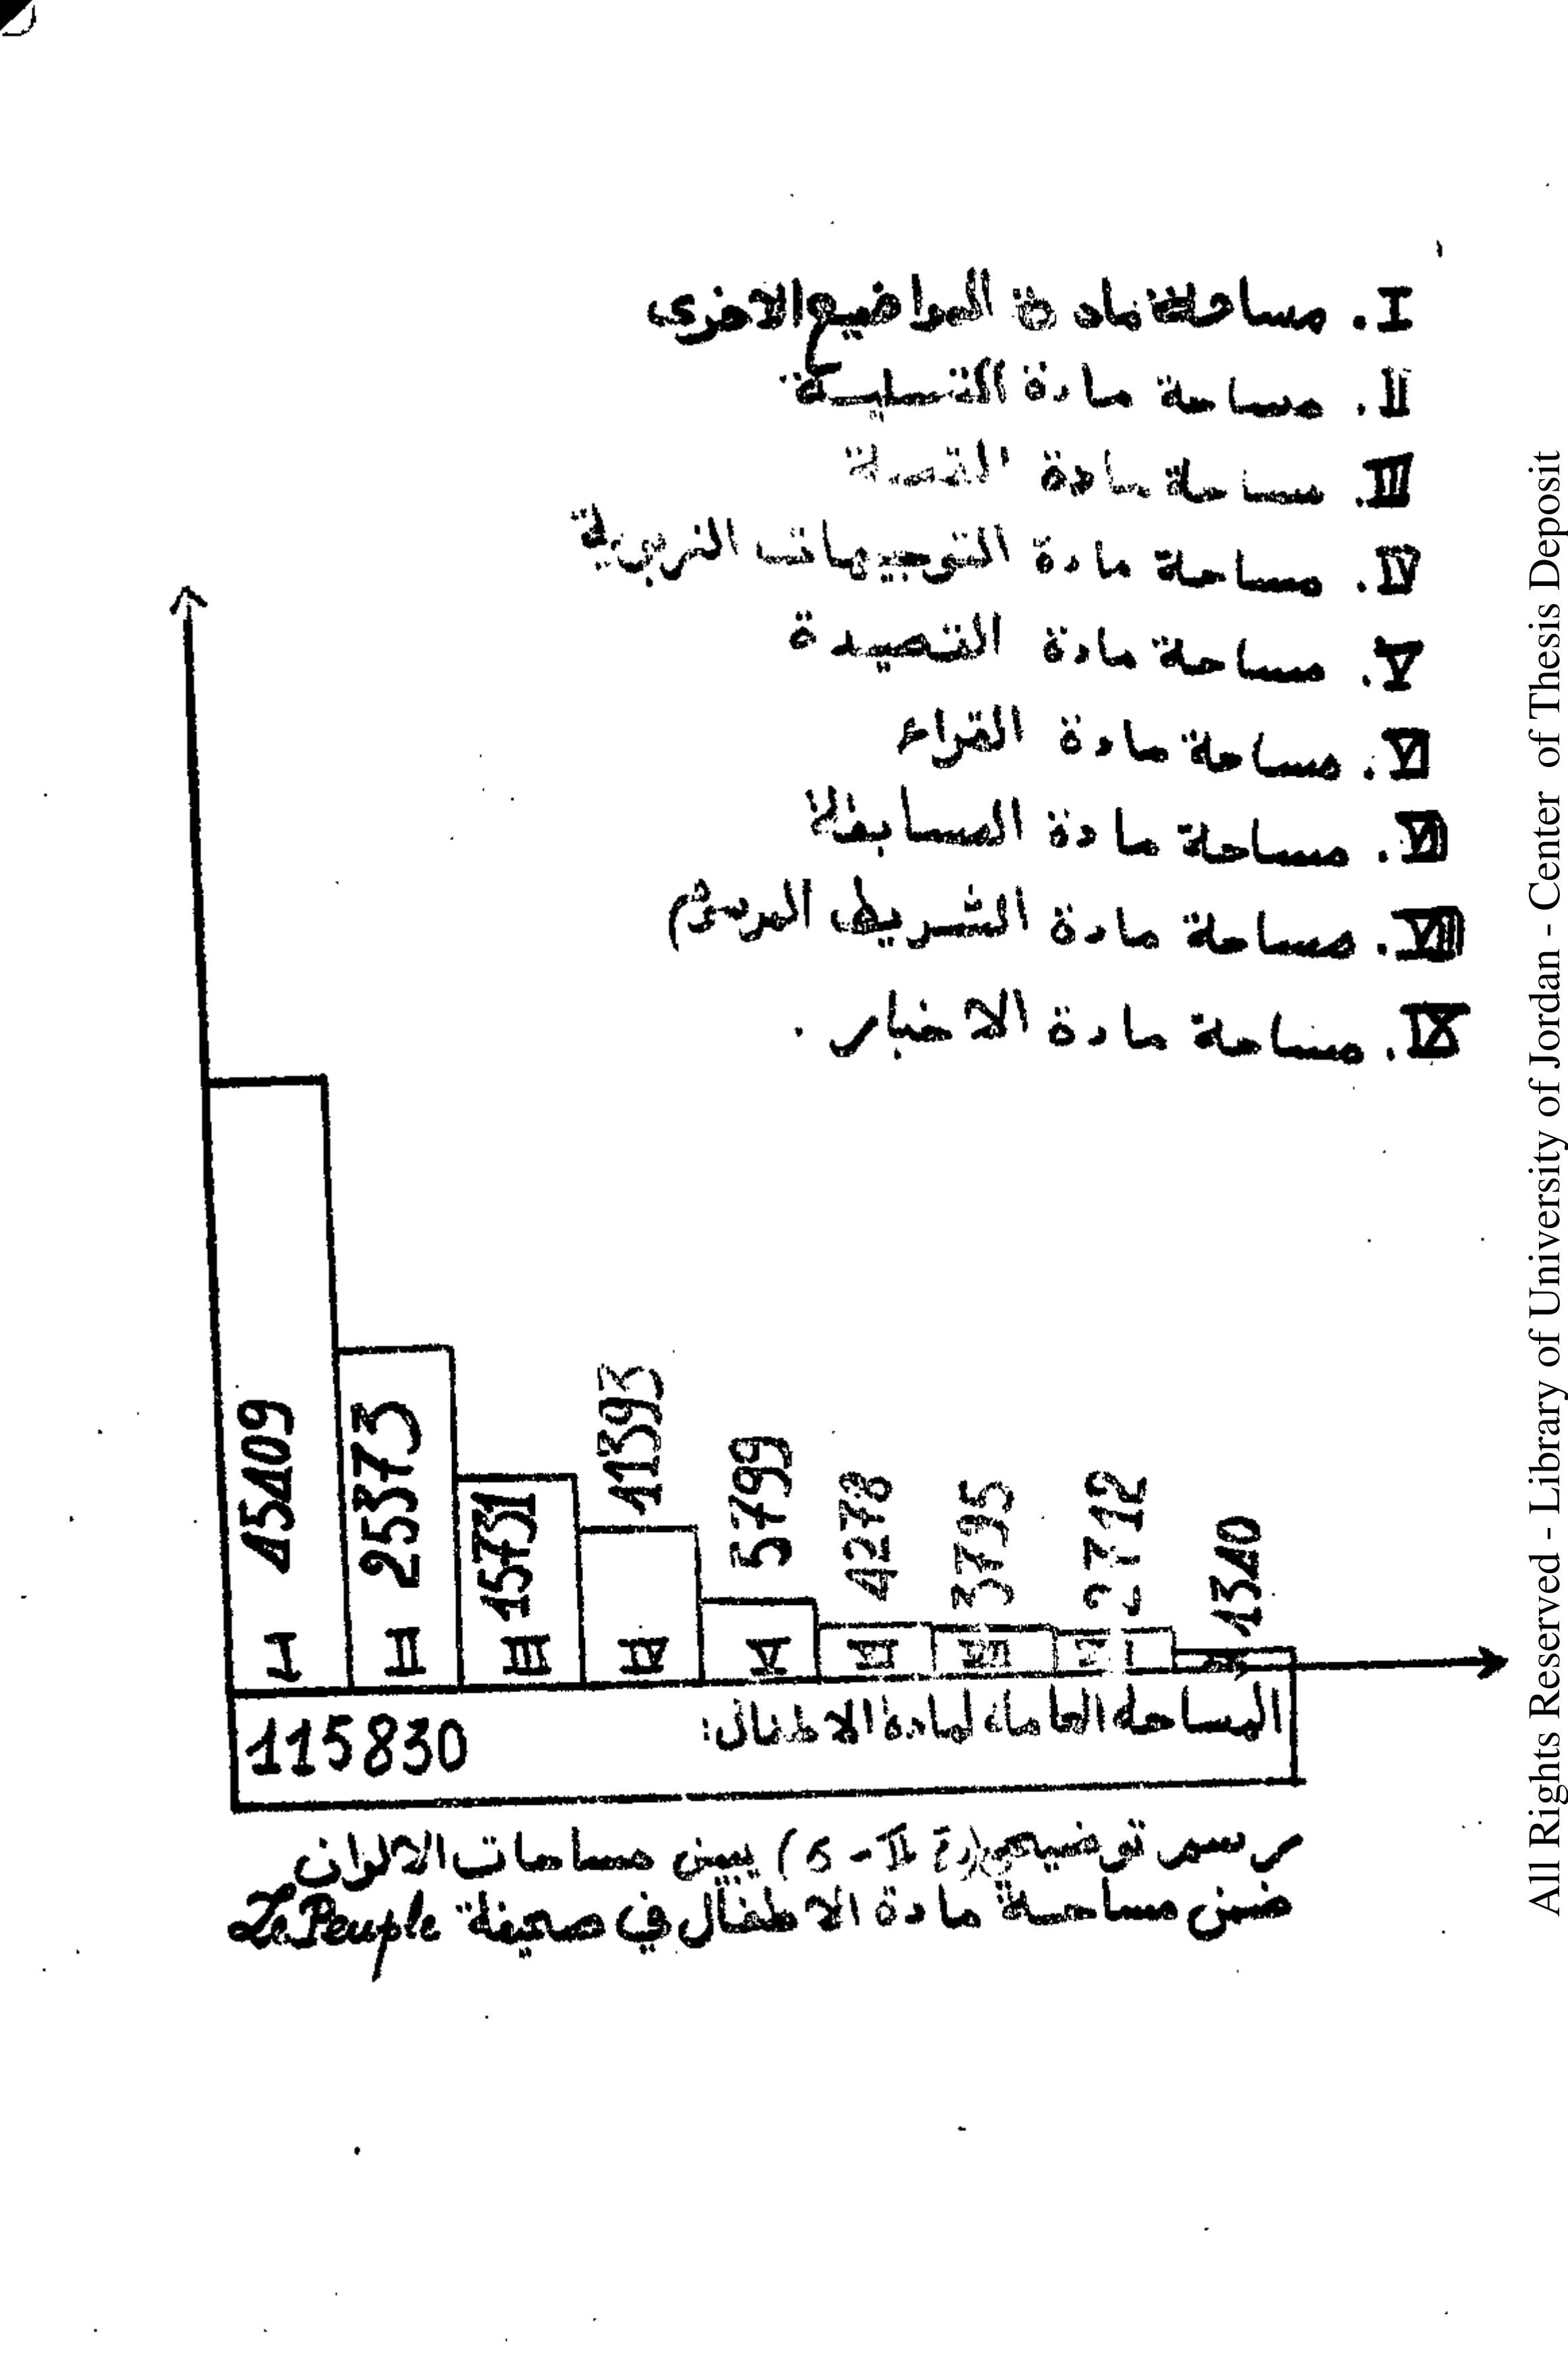 I. مساحة مادة المواضيع الاخرى
II. مساحة مادة التسلية
III. مساحة مادة القصة
IV. مساحة مادة التوجيهات التربوية
V. مساحة مادة القصيدة
VI. مساحة مادة القراء
VII. مساحة مادة المسابقة
VIII. مساحة مادة الشريط المرسوم
IX. مساحة مادة الاخبار.
I 45409
II 25373
III 15731
IV 11393
V 5799
VI 4278
VII 3795
VIII 2712
IX 1340
المساحة العامة لمادة الاطفال: 115830
رسم توضيحي (II - 5) يبين مساحات الالوان
ضمن مساحة مادة الاطفال في صحيفة Le Peuple
All Rights Reserved - Library of University of Jordan - Center of Thesis Deposit